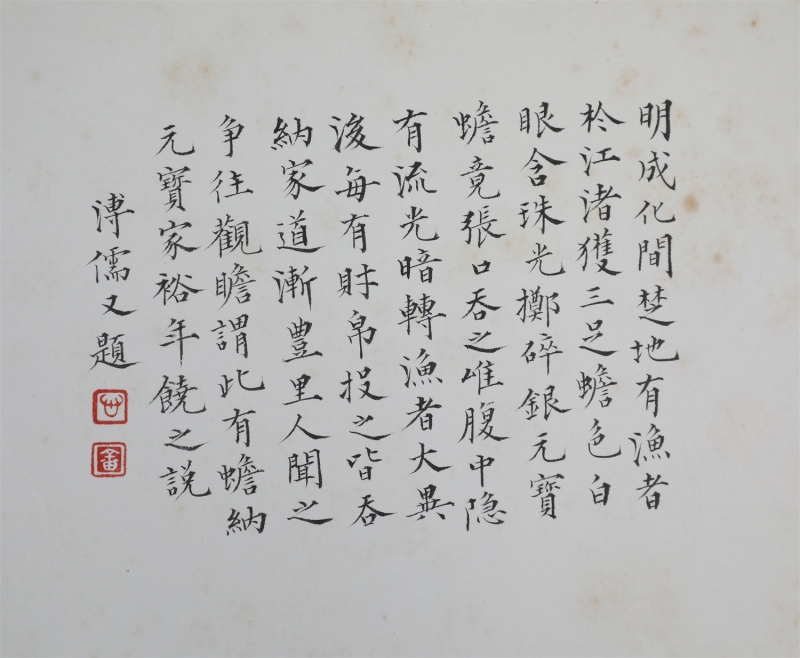 明成化間楚地有漁者
扵江渚獲三足蟾色白
眼含珠光擲碎銀元寶
蟾竟張口吞之唯腹中隐
有流光暗轉漁者大異
後每有財帛投之皆吞
納家道漸豊里人聞之
争往觀瞻謂此有蟾納
元寶家裕年饒之説
溥儒又題